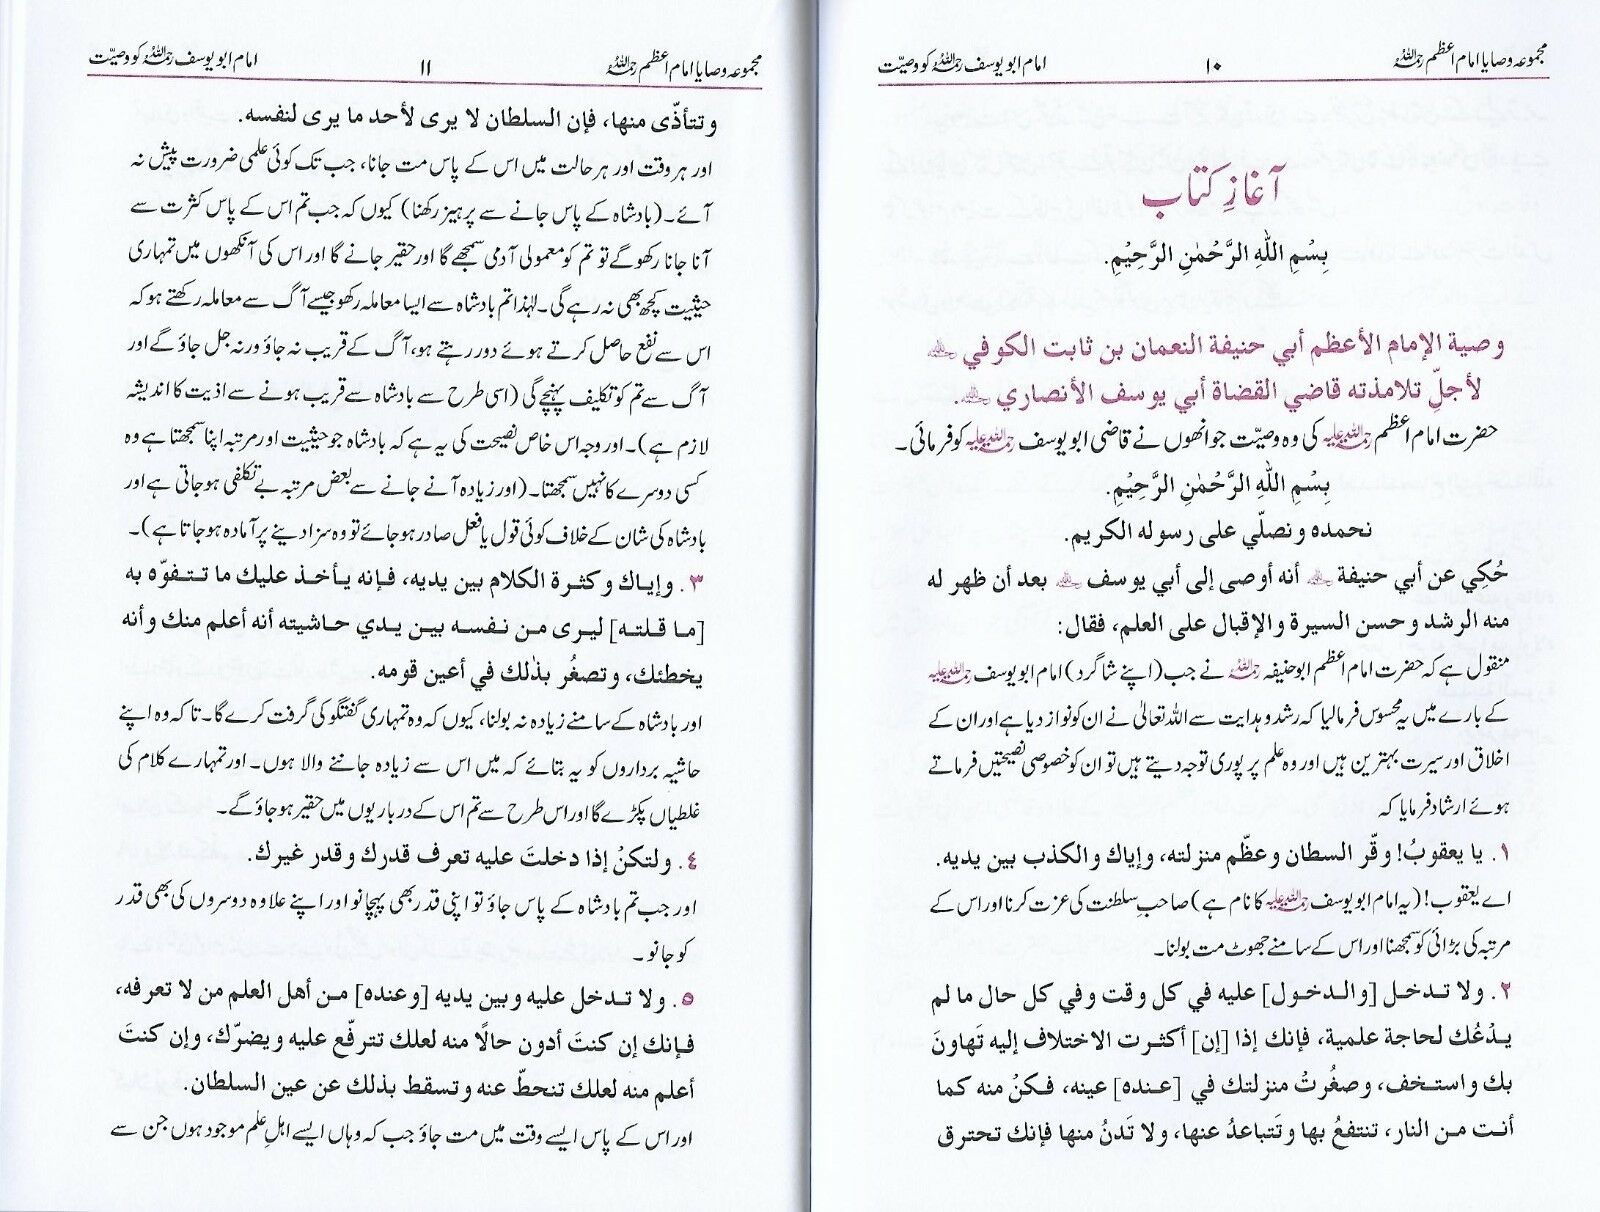 مجموعہ وصایا امام اعظم رحمہ اللہ ۱۰ امام ابو یوسف رحمہ اللہ کو وصیّت
آغازِ کتاب
بِسْمِ اللّٰهِ الرَّحْمٰنِ الرَّحِيْمِ.
وصية الإمام الأعظم أبي حنيفة النعمان بن ثابت الكوفي
لأجلِّ تلامذته قاضي القضاة أبي يوسف الأنصاري
حضرت امام اعظم رحمۃ اللہ علیہ کی وہ وصیّت جو انھوں نے قاضی ابو یوسف رحمۃ اللہ علیہ کو فرمائی۔
بِسْمِ اللّٰهِ الرَّحْمٰنِ الرَّحِيْمِ.
نحمده ونصلّي على رسوله الكريم.
حُكِي عن أبي حنيفة أنه أوصى إلى أبي يوسف بعد أن ظهر له
منه الرشد وحسن السيرة والإقبال على العلم، فقال:
منقول ہے کہ حضرت امام اعظم ابو حنیفہ رحمہ اللہ نے جب (اپنے شاگرد) امام ابو یوسف رحمۃ اللہ علیہ
کے بارے میں یہ محسوس فرمالیا کہ رشد و ہدایت سے اللہ تعالیٰ نے ان کو نواز دیا ہے اور ان کے
اخلاق اور سیرت بہترین ہیں اور وہ علم پر پوری توجہ دیتے ہیں تو ان کو خصوصی نصیحتیں فرماتے
ہوئے ارشاد فرمایا کہ
۱. يا يعقوبُ! وقّر السطان وعظّم منزلته، وإياك والكذب بين يديه.
اے یعقوب! (یہ امام ابو یوسف رحمۃ اللہ علیہ کا نام ہے) صاحبِ سلطنت کی عزت کرنا اور اس کے
مرتبہ کی بڑائی کو سمجھنا اور اس کے سامنے جھوٹ مت بولنا۔
۲. ولا تدخل [والدخول] عليه في كل وقت وفي كل حال ما لم
يدْعُك لحاجة علمية، فإنك إذا [إن] أكثرت الاختلاف إليه تَهاونَ
بك واستخف، وصغُرتْ منزلتك في [عنده] عينه، فكنْ منه كما
أنت من النار، تنتفعُ بها وتَتباعدُ عنها، ولا تَدنُ منها فإنك تحترق
مجموعہ وصایا امام اعظم رحمہ اللہ ۱۱ امام ابو یوسف رحمہ اللہ کو وصیّت
وتتأذّى منها، فإن السلطان لا يرى لأحد ما يرى لنفسه.
اور ہر وقت اور ہر حالت میں اس کے پاس مت جانا، جب تک کوئی علمی ضرورت پیش نہ
آئے۔ (بادشاہ کے پاس جانے سے پرہیز رکھنا) کیوں کہ جب تم اس کے پاس کثرت سے
آنا جانا رکھو گے تو تم کو معمولی آدمی سمجھے گا اور حقیر جانے گا اور اس کی آنکھوں میں تمہاری
حیثیت کچھ بھی نہ رہے گی۔ لہٰذا تم بادشاہ سے ایسا معاملہ رکھو جیسے آگ سے معاملہ رکھتے ہو کہ
اس سے نفع حاصل کرتے ہوئے دور رہتے ہو، آگ کے قریب نہ جاؤ ورنہ جل جاؤ گے اور
آگ سے تم کو تکلیف پہنچے گی (اسی طرح سے بادشاہ سے قریب ہونے سے اذیت کا اندیشہ
لازم ہے)۔ اور وجہ اس خاص نصیحت کی یہ ہے کہ بادشاہ جو حیثیت اور مرتبہ اپنا سمجھتا ہے وہ
کسی دوسرے کا نہیں سمجھتا۔ (اور زیادہ آنے جانے سے بعض مرتبہ بے تکلفی ہو جاتی ہے اور
بادشاہ کی شان کے خلاف کوئی قول یا فعل صادر ہو جائے تو وہ سزا دینے پر آمادہ ہو جاتا ہے)۔
۳. وإياك وكثرة الكلام بين يديه، فإنه يأخذ عليك ما تتفوّه به
[ما قلته] ليرى من نفسه بين يدي حاشيته أنه أعلم منك وأنه
يخطئك، وتصغُر بذٰلك في أعين قومه.
اور بادشاہ کے سامنے زیادہ نہ بولنا، کیوں کہ وہ تمہاری گفتگو کی گرفت کرے گا۔ تاکہ وہ اپنے
حاشیہ برداروں کو یہ بتائے کہ میں اس سے زیادہ جاننے والا ہوں۔ اور تمہارے کلام کی
غلطیاں پکڑے گا اور اس طرح سے تم اس کے درباریوں میں حقیر ہو جاؤ گے۔
٤. ولتكنْ إذا دخلتَ عليه تعرف قدرك وقدر غيرك.
اور جب تم بادشاہ کے پاس جاؤ تو اپنی قدر بھی پہچانو اور اپنے علاوہ دوسروں کی بھی قدر
کو جانو۔
٥. ولا تدخل عليه وبين يديه [وعنده] من أهل العلم من لا تعرفه،
فإنك إن كنتَ أدون حالًا منه لعلك تترفّع عليه ويضرّك، وإن كنتَ
أعلم منه لعلك تنحطّ عنه وتسقط بذلك عن عين السلطان.
اور اس کے پاس ایسے وقت میں مت جاؤ جب کہ وہاں ایسے اہلِ علم موجود ہوں جن سے